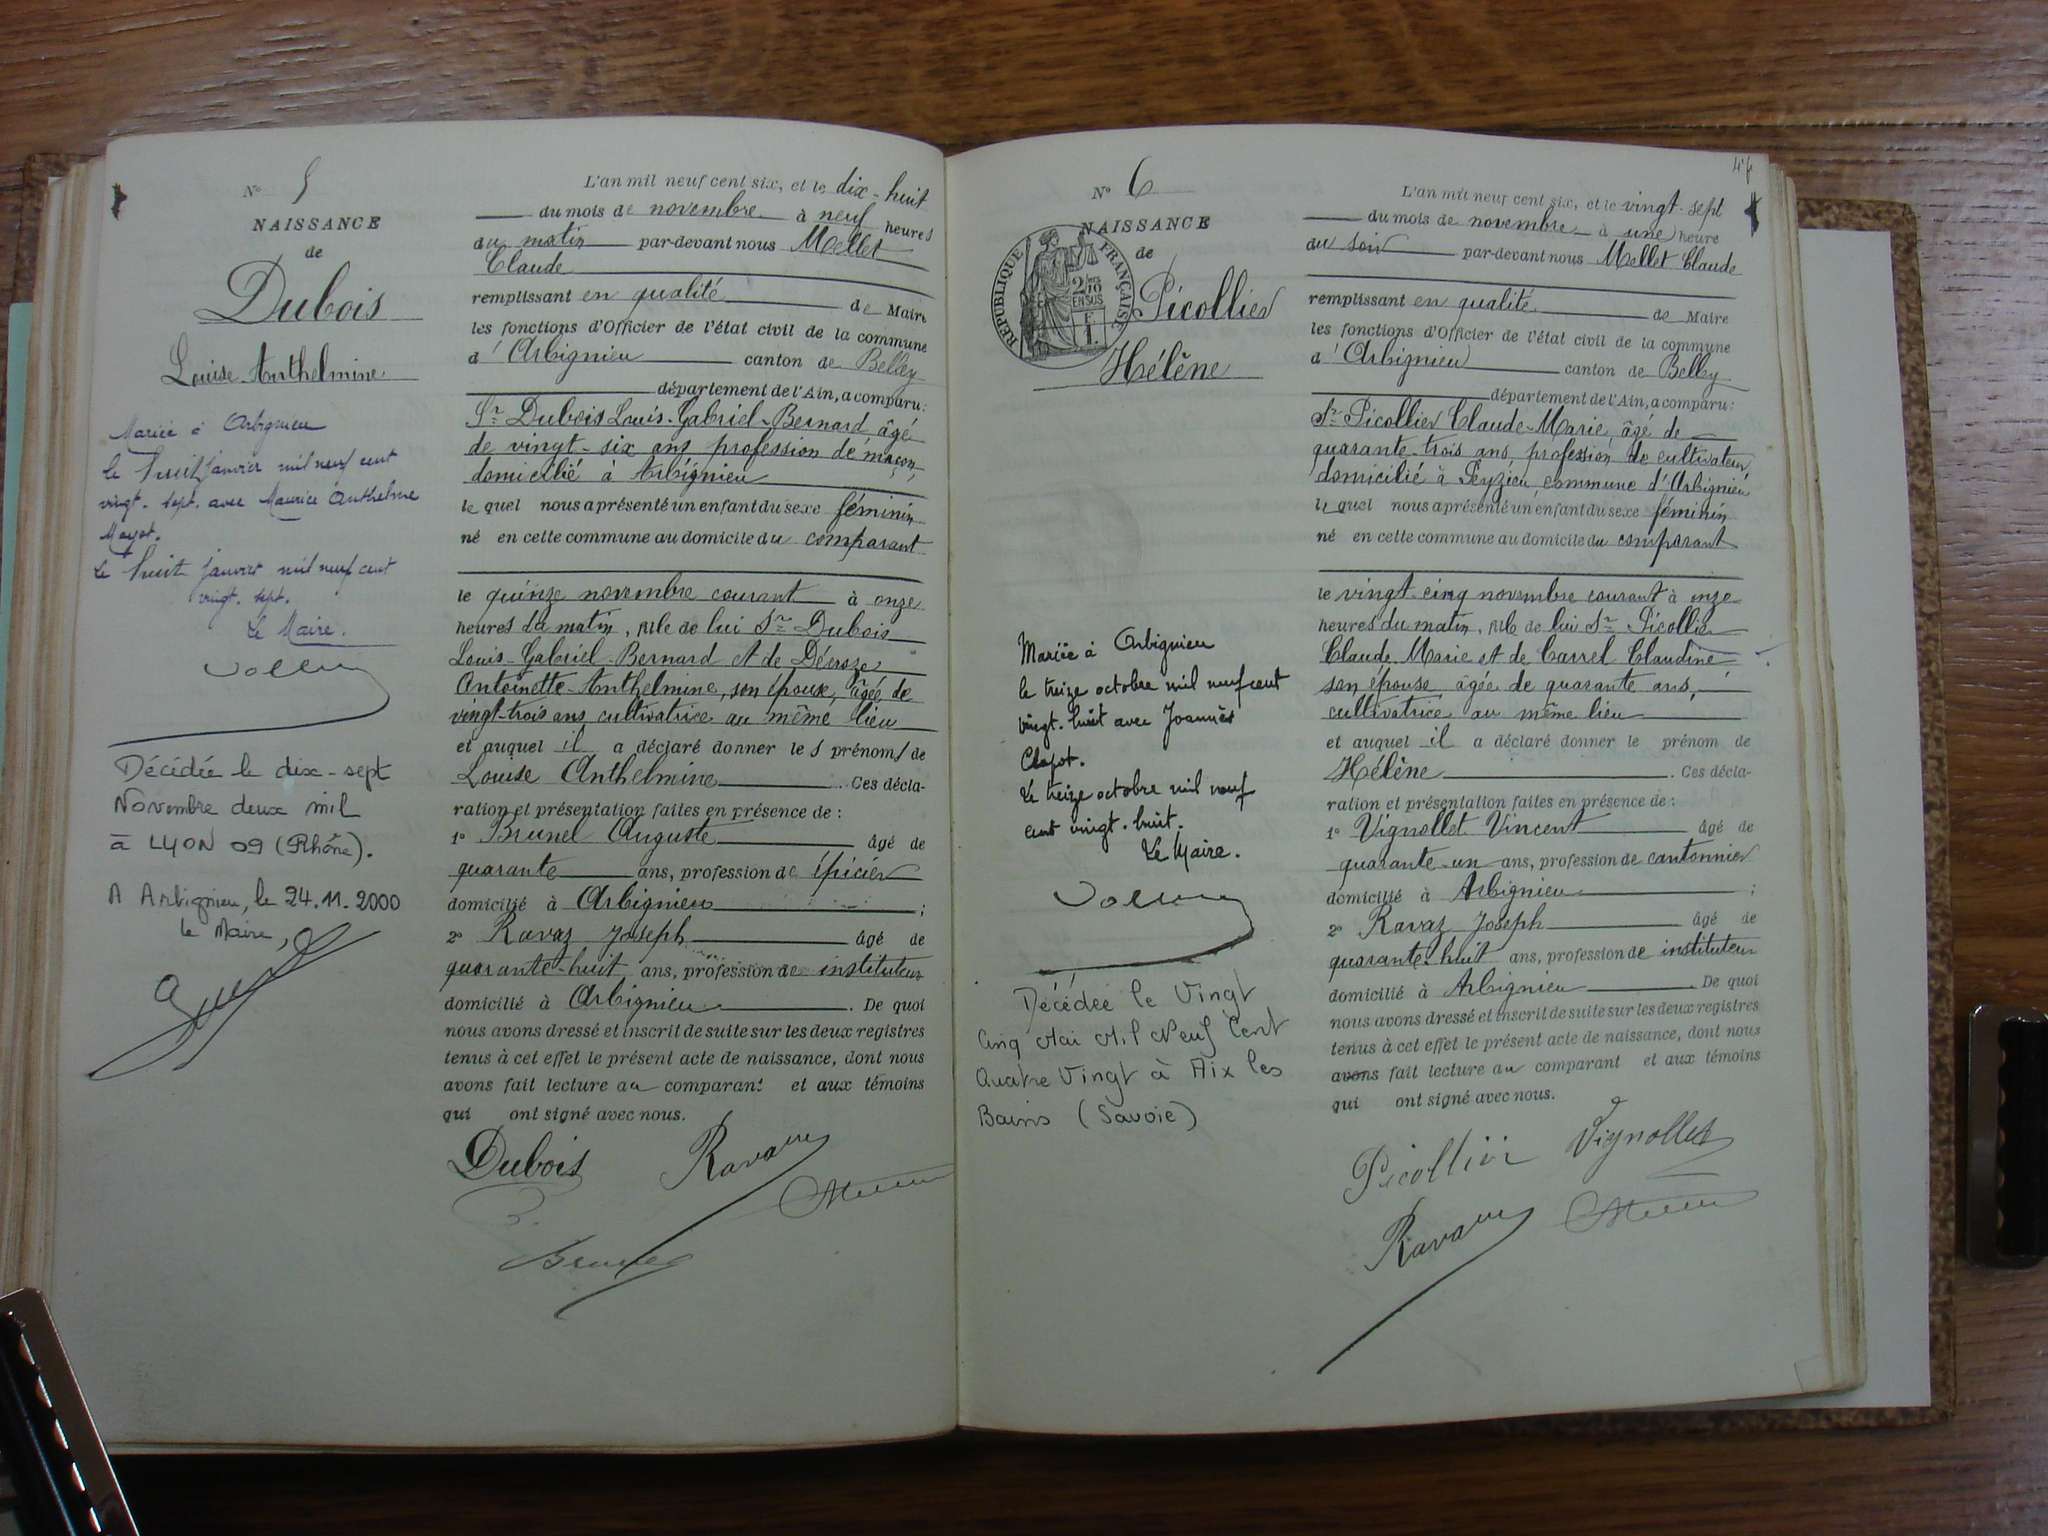 N° 5
NAISSANCE
de
Dubois
Louise Anthelmine
Mariée à Arbignieu
le huit janvier mil neuf cent
vingt-sept avec Maurice Anthelme
le huit janvier mil neuf cent
vingt-sept.
Le Maire.
Décédée le dix-sept
Novembre deux mil
à LYON 09 (Rhône).
A Arbignieu, le 24.11.2000
le Maire,
L'an mil neuf cent six, et le dix-huit
du mois de novembre à neuf heures
du matin par-devant nous Mellet
Claude
remplissant en qualité de Maire
les fonctions d'Officier de l'état civil de la commune
d'Arbignieu canton de Belley
département de l'Ain, a comparu:
Sr Dubois Louis-Gabriel-Bernard âgé
de vingt-six ans profession de maçon,
domicilié à Arbignieu
le quel nous a présenté un enfant du sexe féminin
né en cette commune au domicile du comparant
le quinze novembre courant à onze
heures du matin, née de lui Sr Dubois
Louis-Gabriel-Bernard et de Décroze
Antoinette-Anthelmine, son épouse, âgée de
vingt-trois ans cultivatrice au même lieu
et auquel il a déclaré donner les prénoms de
Louise Anthelmine. Ces décla-
ration et présentation faites en présence de :
1° Brunel Auguste âgé de
quarante ans, profession de épicier
domicilié à Arbignieu ;
2° Ravaz Joseph âgé de
quarante-huit ans, profession de instituteur
domicilié à Arbignieu. De quoi
nous avons dressé et inscrit de suite sur les deux registres
tenus à cet effet le présent acte de naissance, dont nous
avons fait lecture au comparant et aux témoins
qui ont signé avec nous.
Dubois Ravaz
Brunel
47
N° 6
NAISSANCE
de
RÉPUBLIQUE FRANÇAISE
2/10
EN SUS
Picollier
Hélène
Mariée à Arbignieu
le treize octobre mil neuf cent
vingt-huit avec Joannès
Clapot.
Le treize octobre mil neuf
cent vingt-huit.
Le Maire.
Décédée le Vingt
Cinq Mai Mil Neuf Cent
Quatre Vingt à Aix les
Bains (Savoie)
L'an mil neuf cent six, et le vingt-sept
du mois de novembre à une heure
du soir par-devant nous Mellet Claude
remplissant en qualité de Maire
les fonctions d'Officier de l'état civil de la commune
d'Arbignieu canton de Belley
département de l'Ain, a comparu:
Sr Picollier Claude-Marie, âgé de
quarante-trois ans, profession de cultivateur,
domicilié à Peyzieu, commune d'Arbignieu
le quel nous a présenté un enfant du sexe féminin
né en cette commune au domicile du comparant
le vingt-cinq novembre courant à onze
heures du matin, née de lui Sr Picollier
Claude-Marie et de Carrel Claudine
son épouse âgée de quarante ans,
cultivatrice au même lieu
et auquel il a déclaré donner le prénom de
Hélène. Ces décla-
ration et présentation faites en présence de :
1° Vignollet Vincent âgé de
quarante-un ans, profession de cantonnier
domicilié à Arbignieu ;
2° Ravaz Joseph âgé de
quarante-huit ans, profession de instituteur
domicilié à Arbignieu. De quoi
nous avons dressé et inscrit de suite sur les deux registres
tenus à cet effet le présent acte de naissance, dont nous
avons fait lecture au comparant et aux témoins
qui ont signé avec nous.
Picollier Vignollet
Ravaz